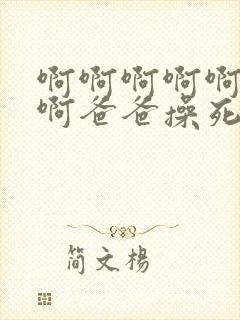 啊啊啊啊啊
啊爸爸操死
简文楊